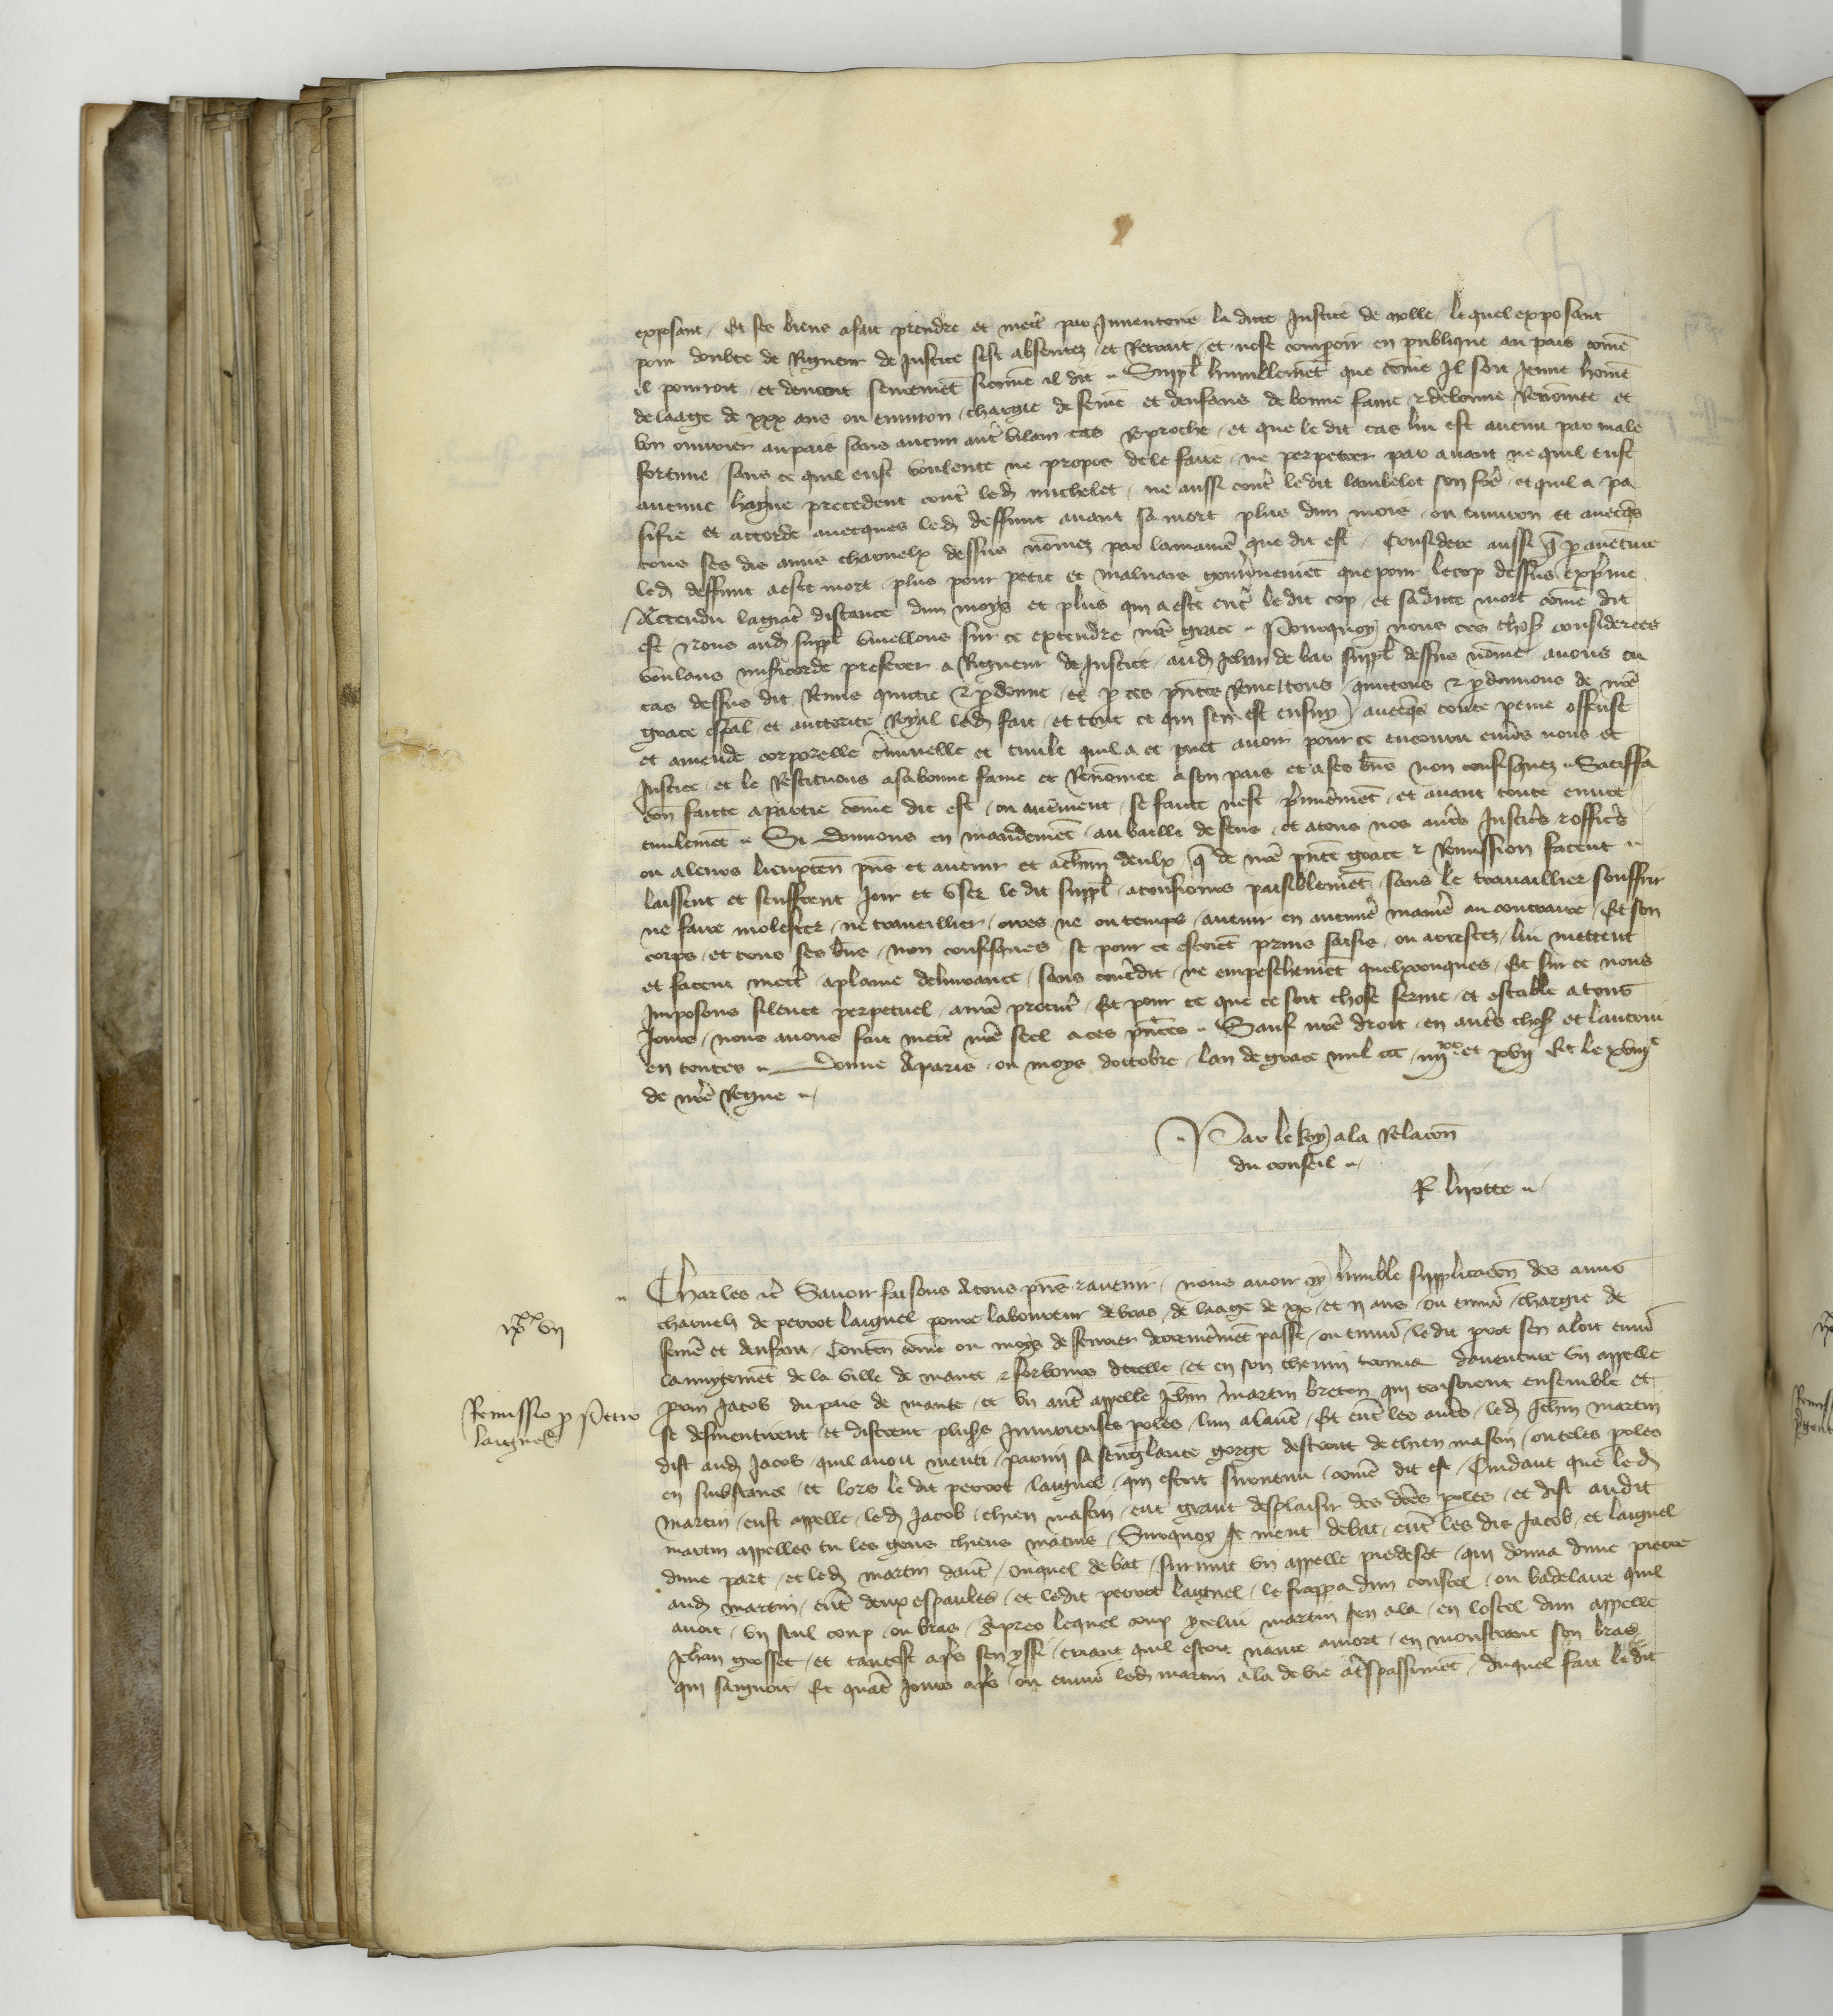 exposant / Et ses biens a fait prendre et mectr̃ par Inuentoire la dicte Justice de nolle / le quel exposant
pour doubte de Rigueur de Justice sest absentez / et Retrait / et nose comparoir en publique au pais com̃e
il pourroit / et deuroit seurem̃et sicom̃e il dit / Suppl̃ humblem̃et que com̃e Il soit Jeune hom̃e
de laage de xxx ans ou enuiron / chargie de fem̃e et denfans de bonne fame & de bonne Renom̃ee et
bon ouurier au pais sans aucun autr̃ vilain cas Reproche / et que le dit cas lui est auenu par male
fortune / sans ce quil eust voulente ne propos de le faire / ne perpetrer par auant ne quil eust
aucune hayne precedent contr̃ led̃ michelet / ne aussi contr̃ ledit lambelot son frẽ / et quil a pa
sifie et accorde auecques led̃ deffunt auant sa mort plus dun mois / ou enuiron et auecq̃s
tous ses dis amis charnelx dessus nom̃ez par la manier̃ que dit est / Considere aussi q̃ p auenture
led̃ deffunt a este mort / plus pour petit et mauuais gouuernem̃et que pour le cop dessus exprime
Attendu la grãt distance dun moys et plus qui a este entr̃ le dit cop / et sa dicte mort com̃e dit
est / Nous aud̃ suppl̃ vueillons sur ce extendre nr̃e grace / Pourquoy nous ces chos̃ considerees
voulans misericorde preferer a Rigueur de Justice / aud̃ Jehan de bar suppl̃ dessus nom̃e auons ou
cas dessus dit Remis quictie & pdonne / et p ces pñtes Remectons / quictons & pdonnons de nr̃e
grace esp̃al / et auctorite Royal led̃ fait / et tout ce qui sen est ensuy / auecq̃s toute peine offense
et amende corporelle criminelle et ciuile quil a et puet auoir pour ce encouru enuers nous et
Justice / et le Restituons a sa bonne fame et Renom̃ee a son pais et a ses biens non confisquez / Satisffa
con̄ faicte a partie com̃e dit est / ou autrement / se faicte nest premierem̃et / et auant toute euure
ciuilem̃et / Si donnons en mandem̃et / au bailli de sens / et a tous nos autr̃s Justicr̃s & officr̃s
ou a leurs lieuxten̄ pñs et auenir et a chũn deulx q̃ de nr̃e pñte grace & Remission facent
laissent et seuffrent Joir et vser le dit suppl̃ / a tousiours paisiblem̃et / sans le trauaillier souffrir
ne faire molester / ne traueillier / ores ne ou temps / auenir en aucune manier̃ au contraire / Et son
corps / et tous ses biens / non confisques / se pour ce estoiet prins saisis / ou arrestez / lui mettent
et facent mectr̃ a plaine deliurance / sans contr̃dit / ne empeschem̃et quelxconques / Et sur ce nous
Imposons silence perpetuel / a nr̃e procur̃ / Et pour ce que ce soit chose ferme / et estable a tous
Jours / nous auons fait mectr̃ nr̃e seel a ces pñtes / Sauf nr̃e droit / en autr̃s chos̃ et lautrui
en toutes / Donne A paris / ou moys doctobre / lan de grace mil ccc / iiij^xx et xvij Et le xviij^e
de nr̃e Regne /
Par le Roy a la Relacon̄
du conseil /
R lyotte /
Charles &c̃ Sauoir faisons A tous pñs & auenir / nous auoir oy humble supplicacon̄ des amis
charnelz de perrot laignel poure laboureur de bras / de laage de xx / et ij ans / ou enuiron̄ / chargie de
fem̃e et denfant / Conten̄ com̃e ou mois de feurier derrem̃et passe / ou enuiron̄ / le dit prot sen aloit enuirõ
lannuytem̃et de la ville de mante & forbours dicelle / et en son chemin trouua dauenture vn appelle
perrin Jacob du pais de mante / et vn autr̃ appelle Jehan martin breton / qui tensoient ensemble et
se desmentirent / et distrent plus̃s Iniurieuses poles / lun a lautr̃ / Et entr̃ les autr̃s / led̃ Jehan martin
dist aud̃ Jacob / quil auoit menti / parmi sa senglante gorge destront de chien mastin / ou teles poles
en substance / et lors le dit perrot laignel / qui estoit suruenu / com̃e dit est / Cuidant que led̃
martin / eust appelle / led̃ Jacob / chien mastin / eut grant desplaisir des dcẽs poles / et dist audit
martin appelles tu les gens chiens matins / Surquoy se meut debat / entr̃ les dis Jacob / et laignel
dune part / et led̃ martin dautr̃ / ouquel debat / suruint vn appelle piedeset / qui donna dune pierre
aud̃ martin / entr̃ deux espaules / et ledit perrot laignel / le frappa dun coustel / ou badelaire quil
auoit / vn seul coup / ou bras / Apres lequel coup ycelui martin sen ala / en lostel dun appelle
Jehan grosset / et tantost apr̃s sen yssi / criant quil estoit naure a mort / en monstrant son bras
qui saignoit / Et quatr̃ Jours apr̃s / ou enuirõ led̃ martin ala de vie a tr̃spassem̃et / duquel fait le dit
ix^xx vij
Remissio p Petro
laignel